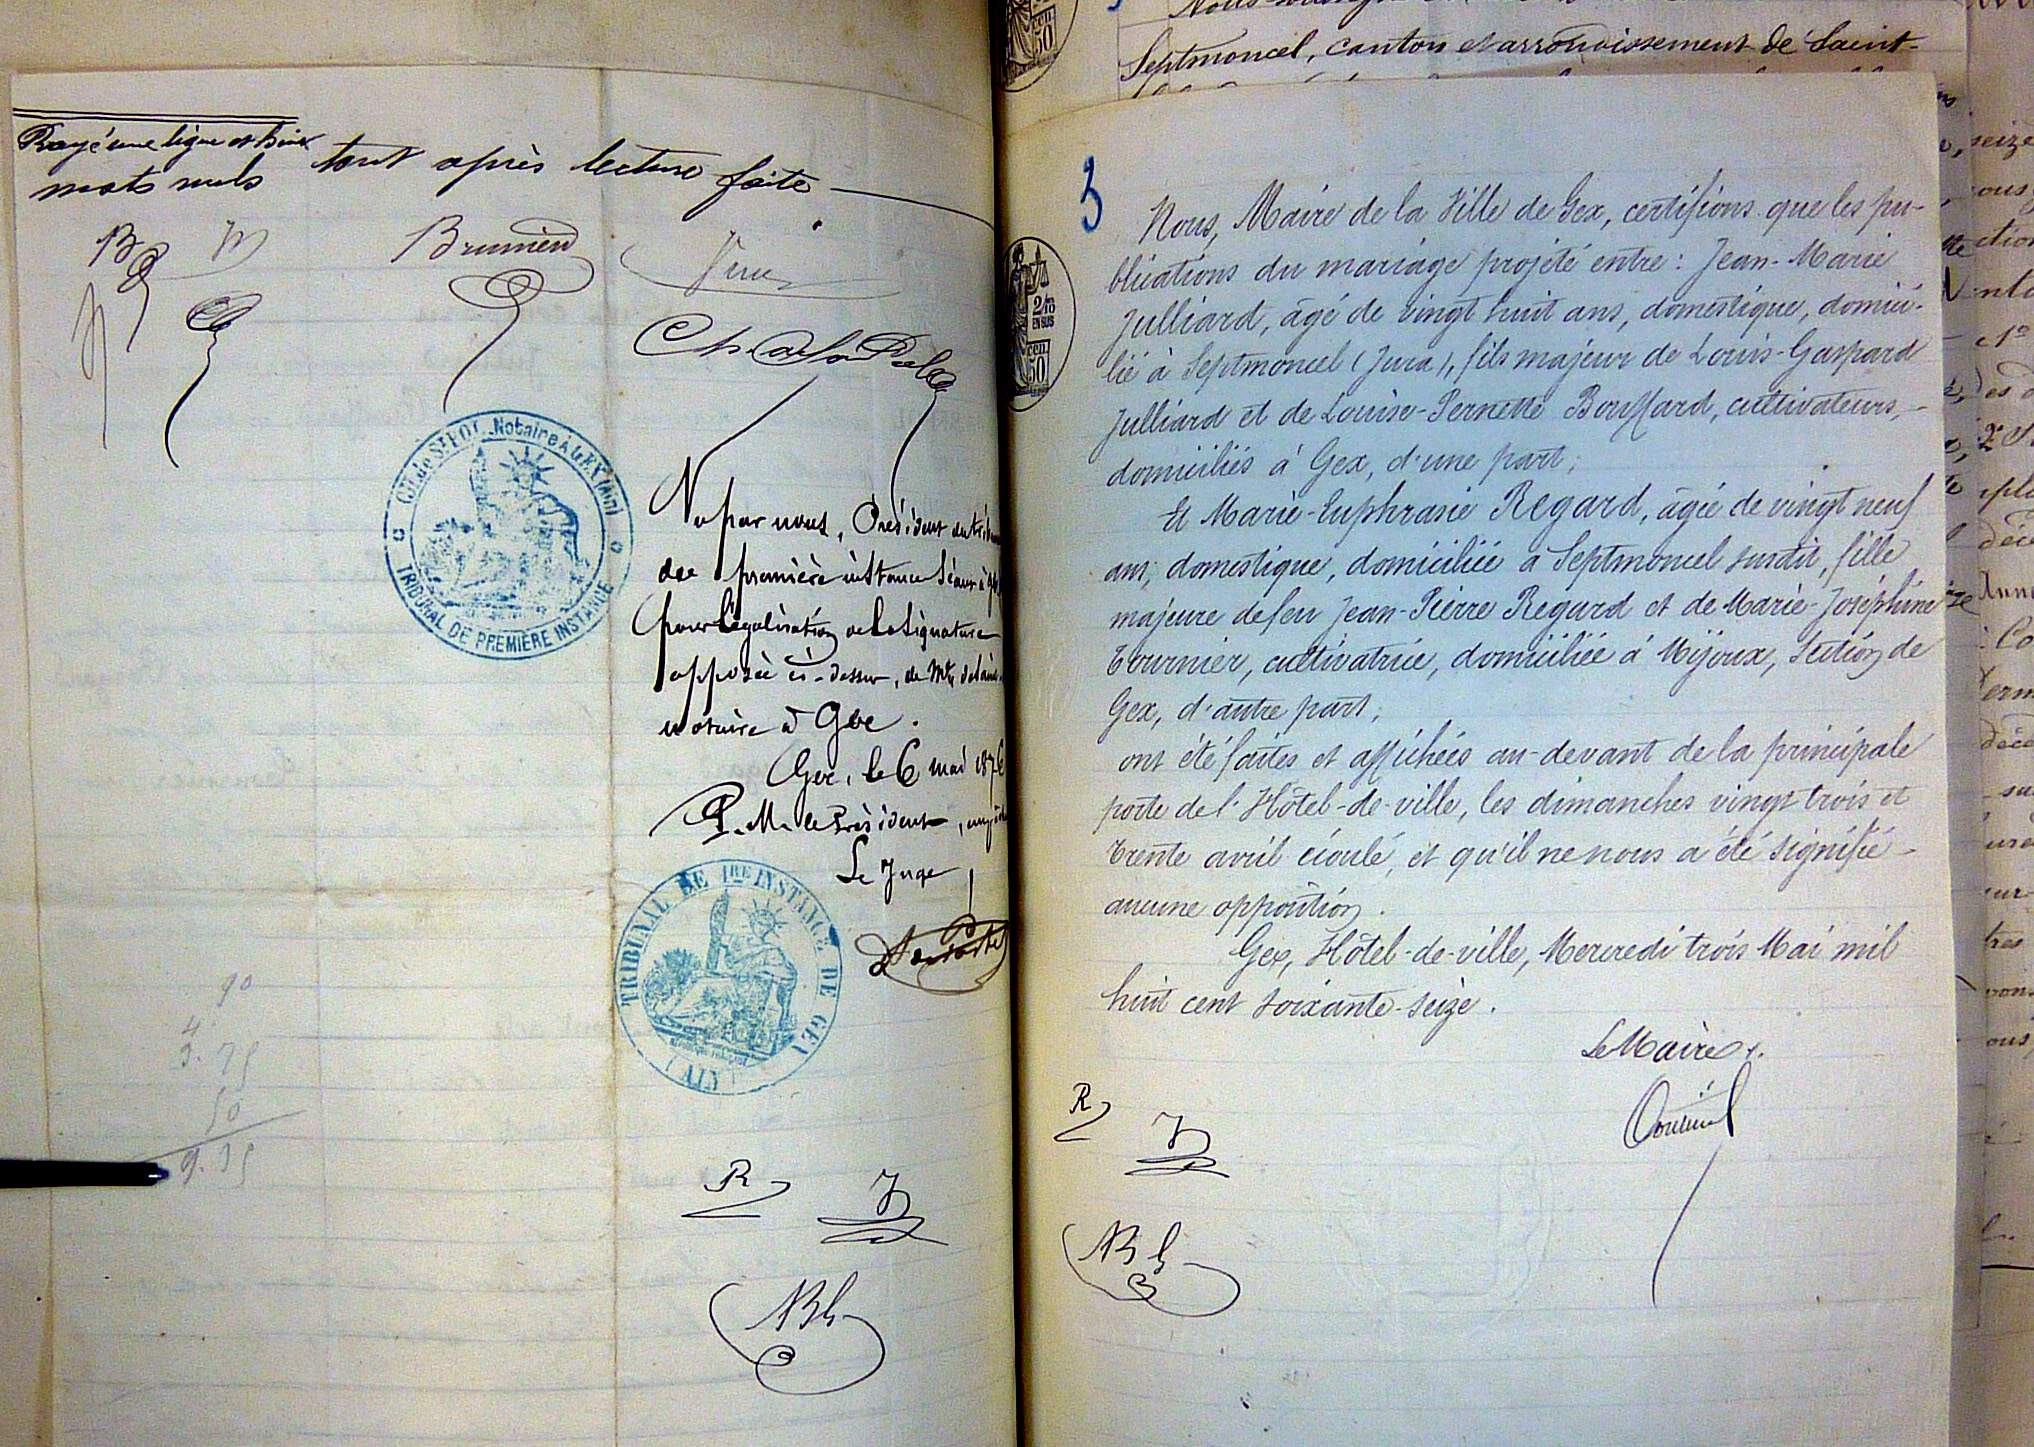 Rayé une ligne et deux
mots nuls
tout après lecture faite
B M
Brunier
CH. de St POL Notaire à GEX (Ain)
TRIBUNAL DE PREMIÈRE INSTANCE
Vu par nous, Président du
de première instance séant à
pour légalisation de la signature
apposée ci-dessus, de Mtre
notaire à Gex.
Gex, le 6 mai 187
P. M. le Président,
Le Juge
TRIBUNAL DE 1RE INSTANCE DE GEX
(AIN)
90
4
3.75
50
9.35
R J
Septmoncel, canton et arrondissement de Saint-
3
2/10
EN SUS
50
cen
Nous, Maire de la Ville de Gex, certifions que les pu-
blications du mariage projeté entre : Jean-Marie
Julliard, âgé de vingt huit ans, domestique, domici-
lié à Septmoncel (Jura), fils majeur de Louis-Gaspard
Julliard et de Louise-Pernette Bouffard, cultivateurs,
domiciliés à Gex, d'une part;
Et Marie-Euphrasie Regard, âgée de vingt neuf
ans, domestique, domiciliée à Septmoncel susdit, fille
majeure de feu Jean-Pierre Regard et de Marie-Joséphine
Tournier, cultivatrice, domiciliée à Mijoux, Section de
Gex, d'autre part;
ont été faites et affichées au-devant de la principale
porte de l'Hôtel-de-ville, les dimanches vingt trois et
trente avril écoulé, et qu'il ne nous a été signifié
aucune opposition.
Gex, Hôtel-de-ville, Mercredi trois Mai mil
huit cent soixante-seize.
Le Maire,
R
J